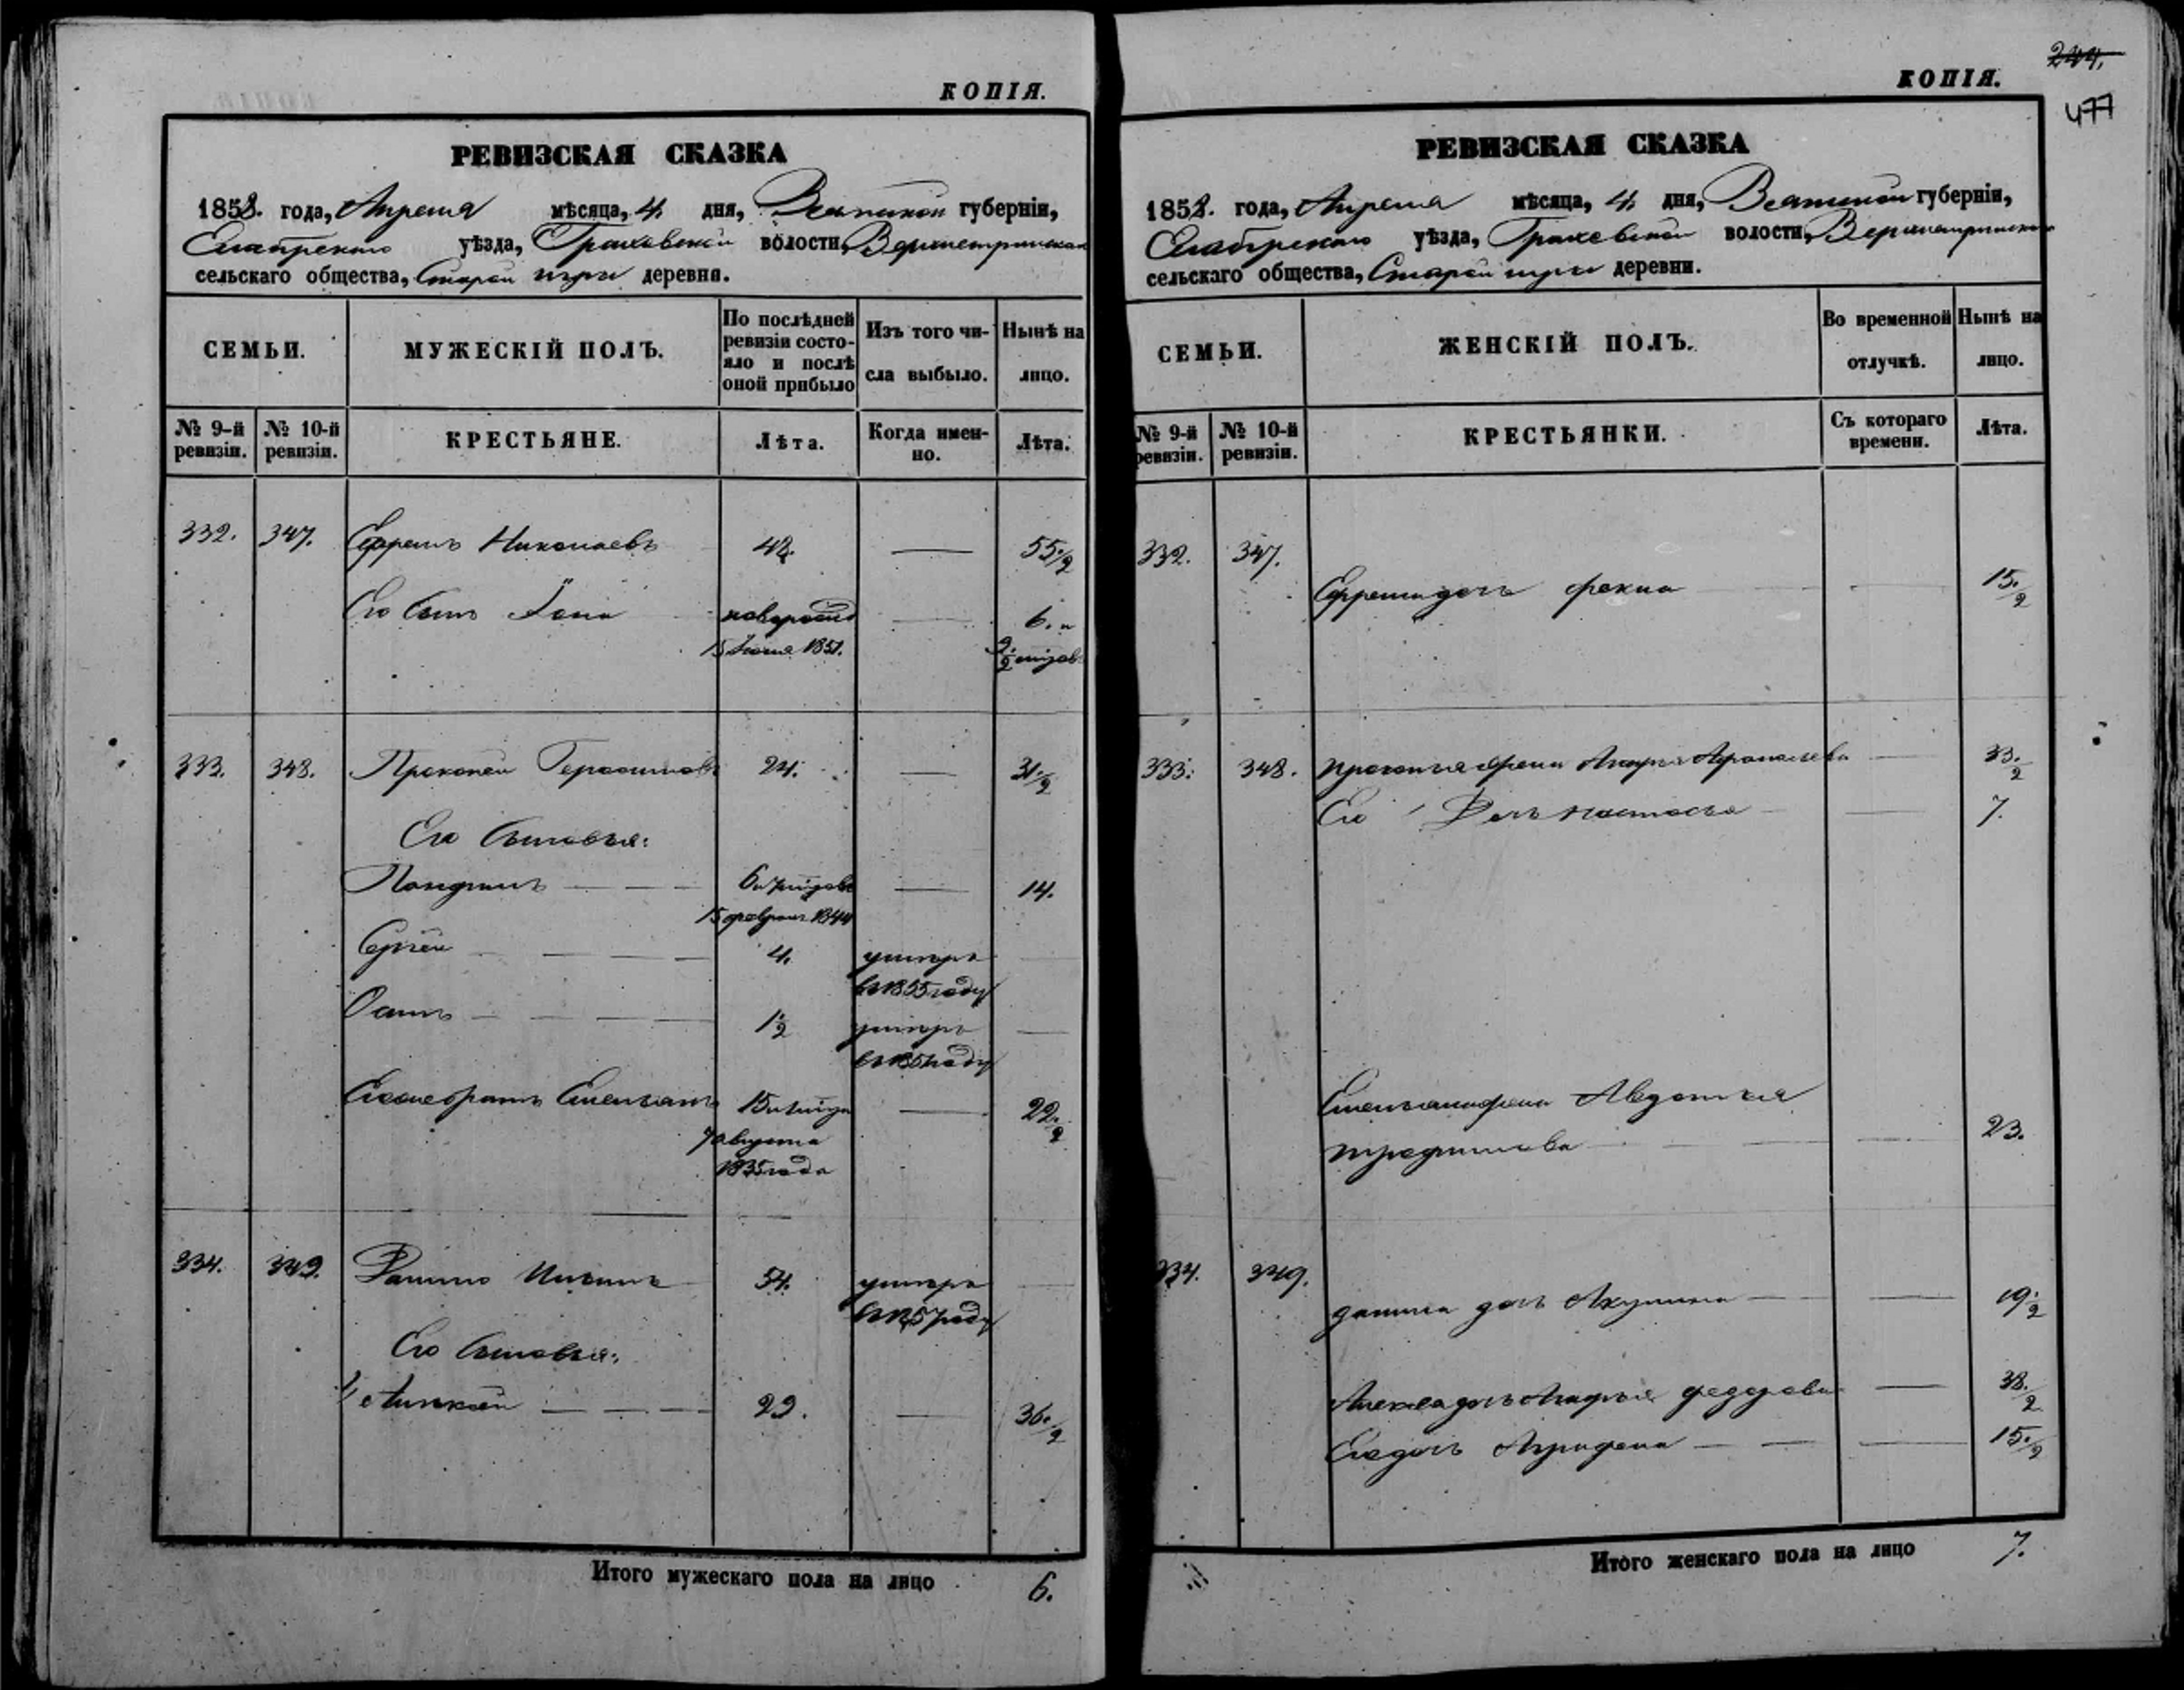 КОПІЯ.
РЕВИЗСКАЯ СКАЗКА
1858. года, Апреля мѣсяца, 4. дня, Вятской губерніи,
Елабугскаго уѣзда, Граховской волости,
сельскаго общества, Старой игры деревня.
СЕМЬИ.
МУЖЕСКІЙ ПОЛЪ.
По послѣдней
ревизіи состо-
яло и послѣ
оной прибыло
Изъ того чи-
сла выбыло.
Нынѣ на
лицо.
№ 9-й
ревизіи.
№ 10-й
ревизіи.
КРЕСТЬЯНЕ.
Лѣта.
Когда имен-
но.
Лѣта.
332. 347. Ефремъ Николаевъ 42. — 55 1/2
Его сынъ новорожд — 6. и
15 1851.
333. 348. Прокопей Герасимовъ 24. — 31 1/2
Его Сыновья:
— 14.
15 февраля 1844
Сергей 4. умеръ —
въ 1855 году
Осипъ 1 1/2 умеръ —
Емельянъ 15 — 22 1/2
7 августа
1835 года
334. 349. Данило 54. умеръ —
въ 1857 году
Его Сыновья:
1, Алексей 29. — 36 1/2
Итого мужескаго пола на лицо 6.
244.
КОПІЯ.
477
РЕВИЗСКАЯ СКАЗКА
1858. года, Апреля мѣсяца, 4. дня, Вятской губерніи,
Елабугскаго уѣзда, Граховской волости,
сельскаго общества, Старой игры деревни.
СЕМЬИ.
ЖЕНСКІЙ ПОЛЪ.
Во временной
отлучкѣ.
Нынѣ на
лицо.
№ 9-й
ревизіи.
№ 10-й
ревизіи.
КРЕСТЬЯНКИ.
Съ котораго
времени.
Лѣта.
332. 347.
Ефрема дочь Фекла — 15 1/2
333. 348. Прокопья жена Афанасьева — 33 1/2
Его Дочь Настасья — 7.
Емельяна жена Авдотья
трофимова — 23.
334. 349.
данила дочь Акулина — 19 1/2
Агафья федорова — 38 1/2
Ея дочь — 15 1/2
Итого женскаго пола на лицо 7.